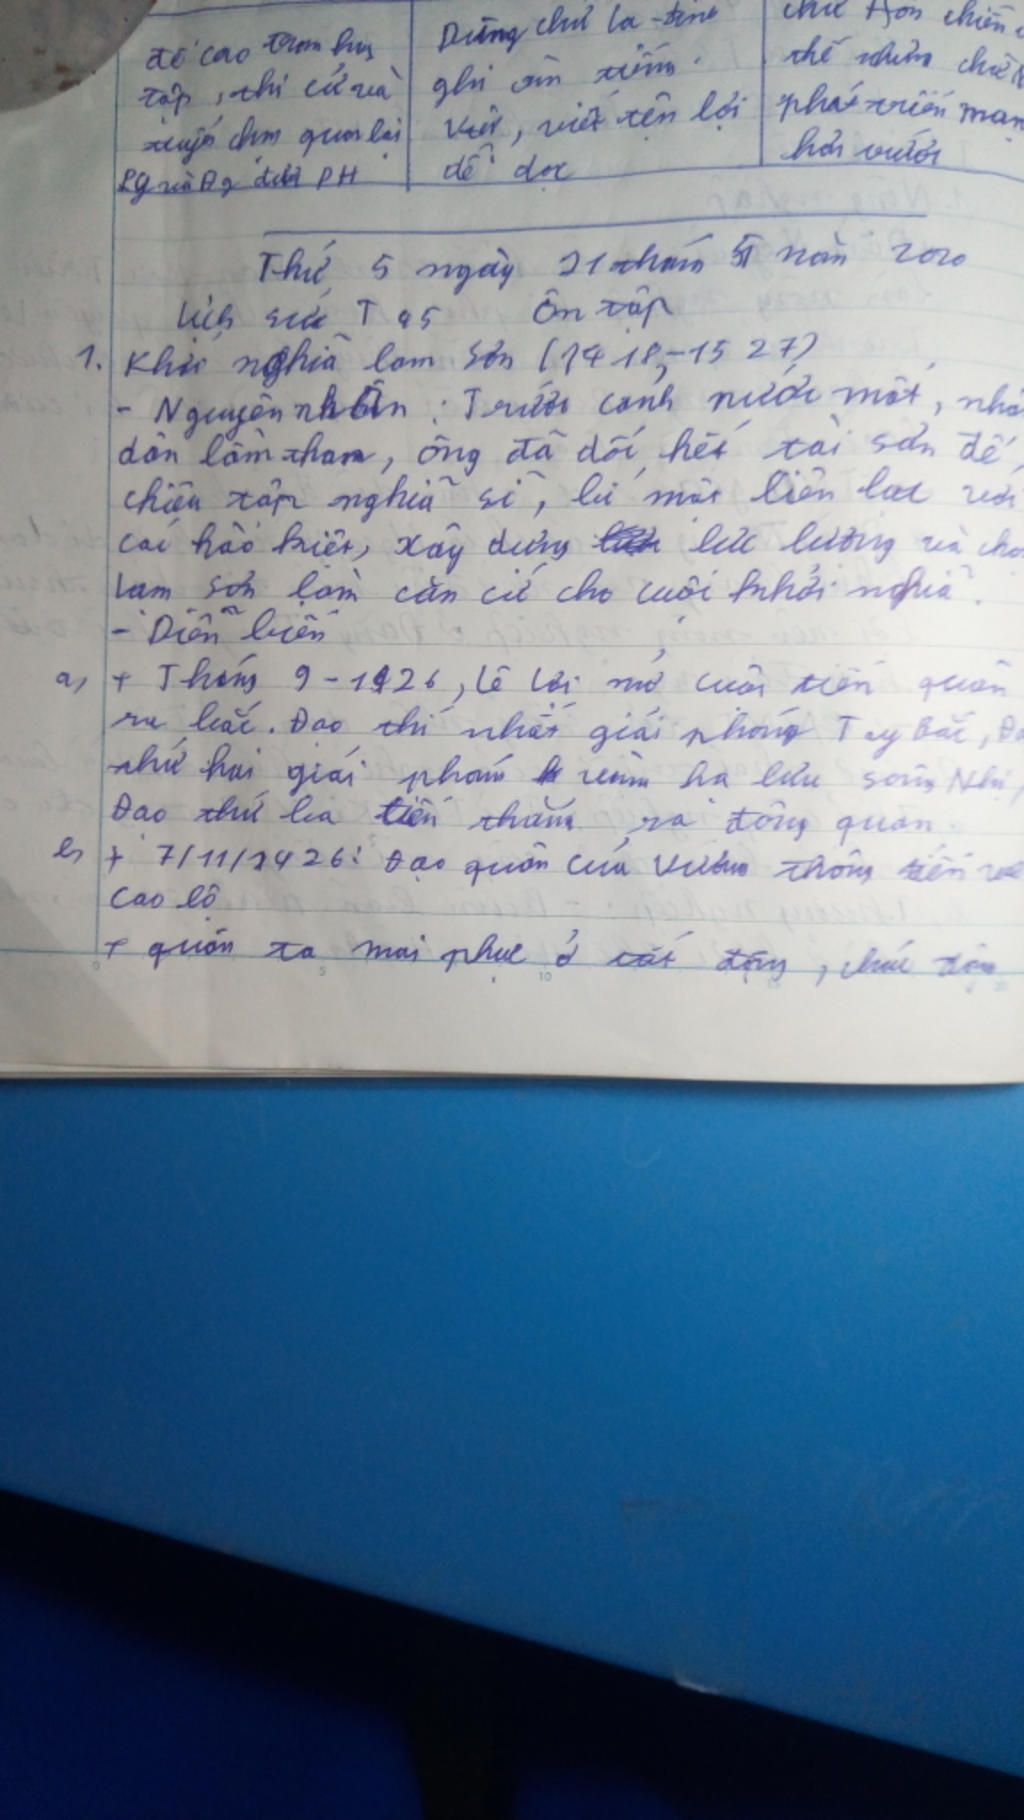 đề cao trong học
tập, thi cử và
tuyển chọn quan lại
Dùng chữ la-tinh
ghi âm tiếng
Việt, viết tiện lợi
dễ đọc
chữ Hán chiếm
thế nhưng chữ
phát triển mạn
hơn trước
Thứ 5 ngày 21 tháng 5 năm 2020
Lịch sử T 45 Ôn tập
1. Khởi nghĩa lam Sơn (1418-1527)
- Nguyên nhân: Trước cảnh nước mất, nhâ
dân lầm than, ông đã dốc hết tài sản để
chiêu tập nghĩa sĩ, bí mật liên lạc với
các hào kiệt, xây dựng lực lượng và chọ
Lam Sơn làm căn cứ cho cuộc khởi nghĩa.
- Diễn biến
a, + Tháng 9-1426, Lê Lợi mở cuộc tiến quân
ra bắc. Đạo thứ nhất giải phóng Tây Bắc, Đạ
thứ hai giải phóng vùng hạ lưu sông Nhị,
Đạo thứ ba tiến thẳng ra đông quan.
b, + 7/11/1426: Đạo quân của Vương thông tiến về
Cao bộ
+ quân ta mai phục ở tốt động, chúc động